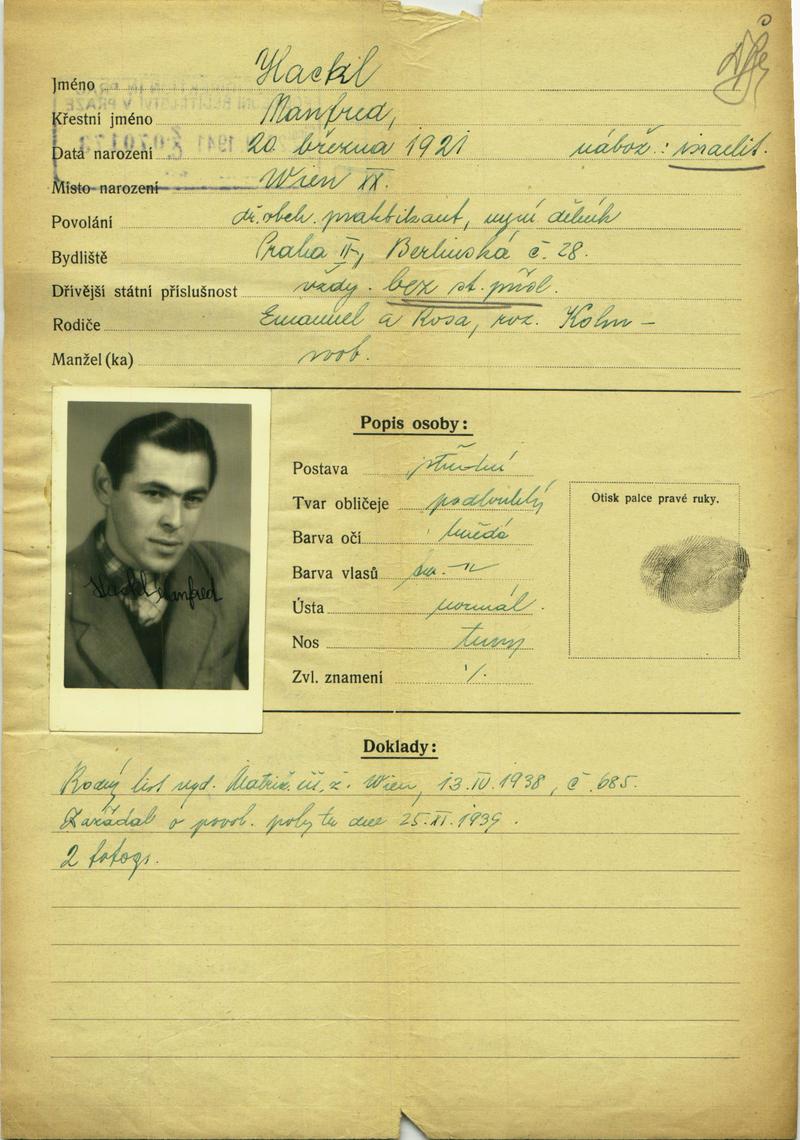 Jméno Hackl
Křestní jméno Manfred,
Datá narození 20 března 1921 nábož.: israelit.
Místo narození Wien XX.
Povolání dř. obch. praktikant, nyní dělník
Bydliště Praha II, Berlínská č. 28.
Dřívější státní příslušnost vždy. bez st. přísl.
Rodiče Emanuel a Rosa, roz. Kohn –
Manžel (ka) svob.
Popis osoby:
Postava střední
Tvar obličeje podlouhlý
Otisk palce pravé ruky.
Barva očí hnědé
Barva vlasů
Hackl Manfred
Ústa normál.
Nos
Zvl. znamení ·/.
Doklady:
Rodný list vyd. Matrič. úř. ž. Wien, 13.IV.1938, č. 685.
Zažádal o povol. pobytu dne 25.XI.1939.
2 fotogr.